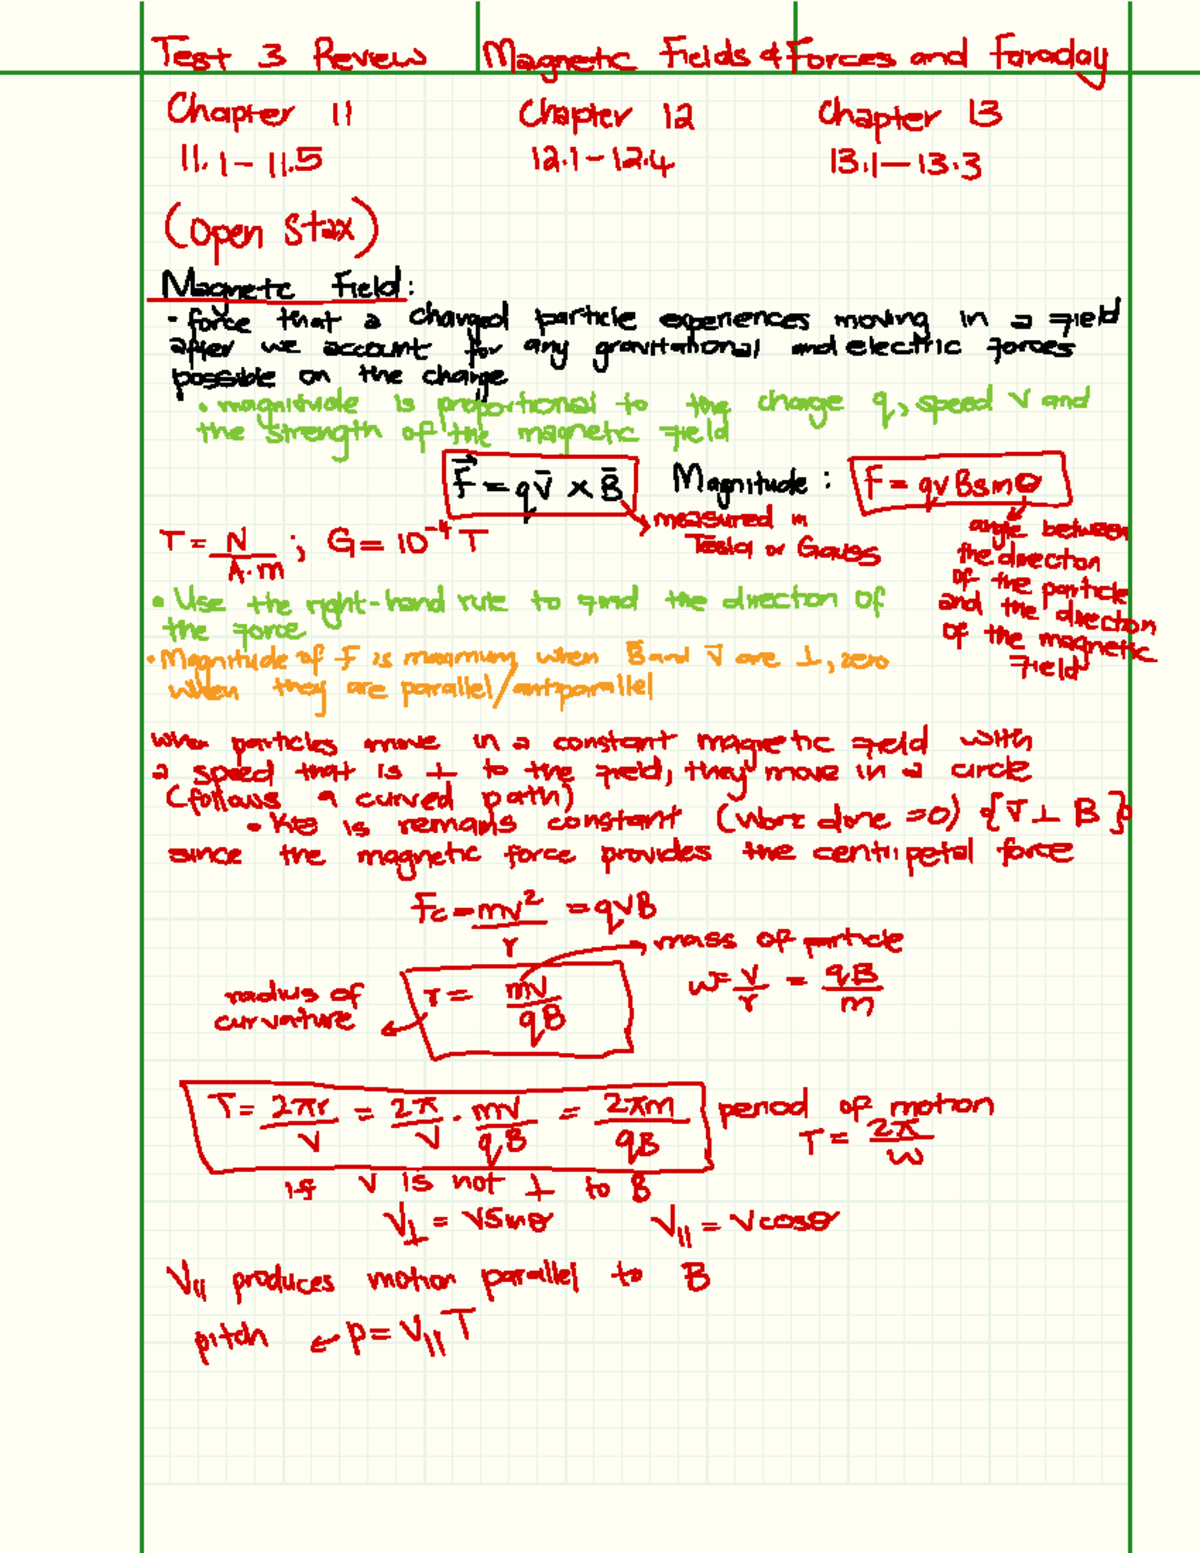 Test 3 Review Magnetic Fields & Forces and Faraday
Chapter 11 Chapter 12 Chapter 13
11.1 - 11.5 12.1 - 12.4 13.1 - 13.3
(Open Stax)
Magnetic Field:
· force that a charged particle experiences moving in a field
after we account for any gravitational and electric forces
possible on the charge
· magnitude is proportional to the charge q, speed v and
the strength of the magnetic field
F⃗ = qv̄ × B̄ Magnitude: F = qvBsinθ
measured in
Tesla or Gauss
T = N/A·m ; G = 10⁻⁴ T
angle between
the direction
of the particle
and the direction
of the magnetic
field
• Use the right-hand rule to find the direction of
the force
• Magnitude of F is maximum when B̄ and v̄ are ⊥, zero
when they are parallel/antiparallel
when particles move in a constant magnetic field with
a speed that is ⊥ to the field, they move in a circle
(follows a curved path)
• KE is remains constant (work done = 0) {v̄ ⊥ B}
since the magnetic force provides the centripetal force
Fc = mv²/r = qvB
mass of particle
radius of
curvature
r = mv/qB
ω = v/r = qB/m
T = 2πr/v = 2π/v · mv/qB = 2πm/qB period of motion
T = 2π/ω
if v is not ⊥ to B
v⊥ = vsinθ v∥ = vcosθ
v∥ produces motion parallel to B
pitch ← p = v∥T